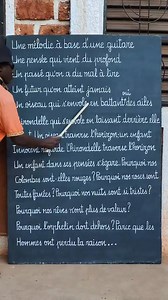 Une mélodie à base d'une guitare
Une pensée qui vient du profond
Un passé qu'on a du mal à lire
Un futur qu'on atteint jamais
où
Un oiseau qui s'envole en battant des ailes
hirondelle qui s'envole en laissant derrière elle
Un oiseau traverse l'horizon, un enfant
Innocent regarde l'hirondelle traverse l'horizon
Un enfant dans ses pensées s'égare. Pourquoi nos
Colombes sont-elles rouges ? Pourquoi nos roses sont
Toutes fanées ? Pourquoi nos nuits sont si tristes ?
Pourquoi nos rêves n'ont plus de valeur ?
Pourquoi l'orphelin doit dehors ? Parce que les
Hommes ont perdu la raison...